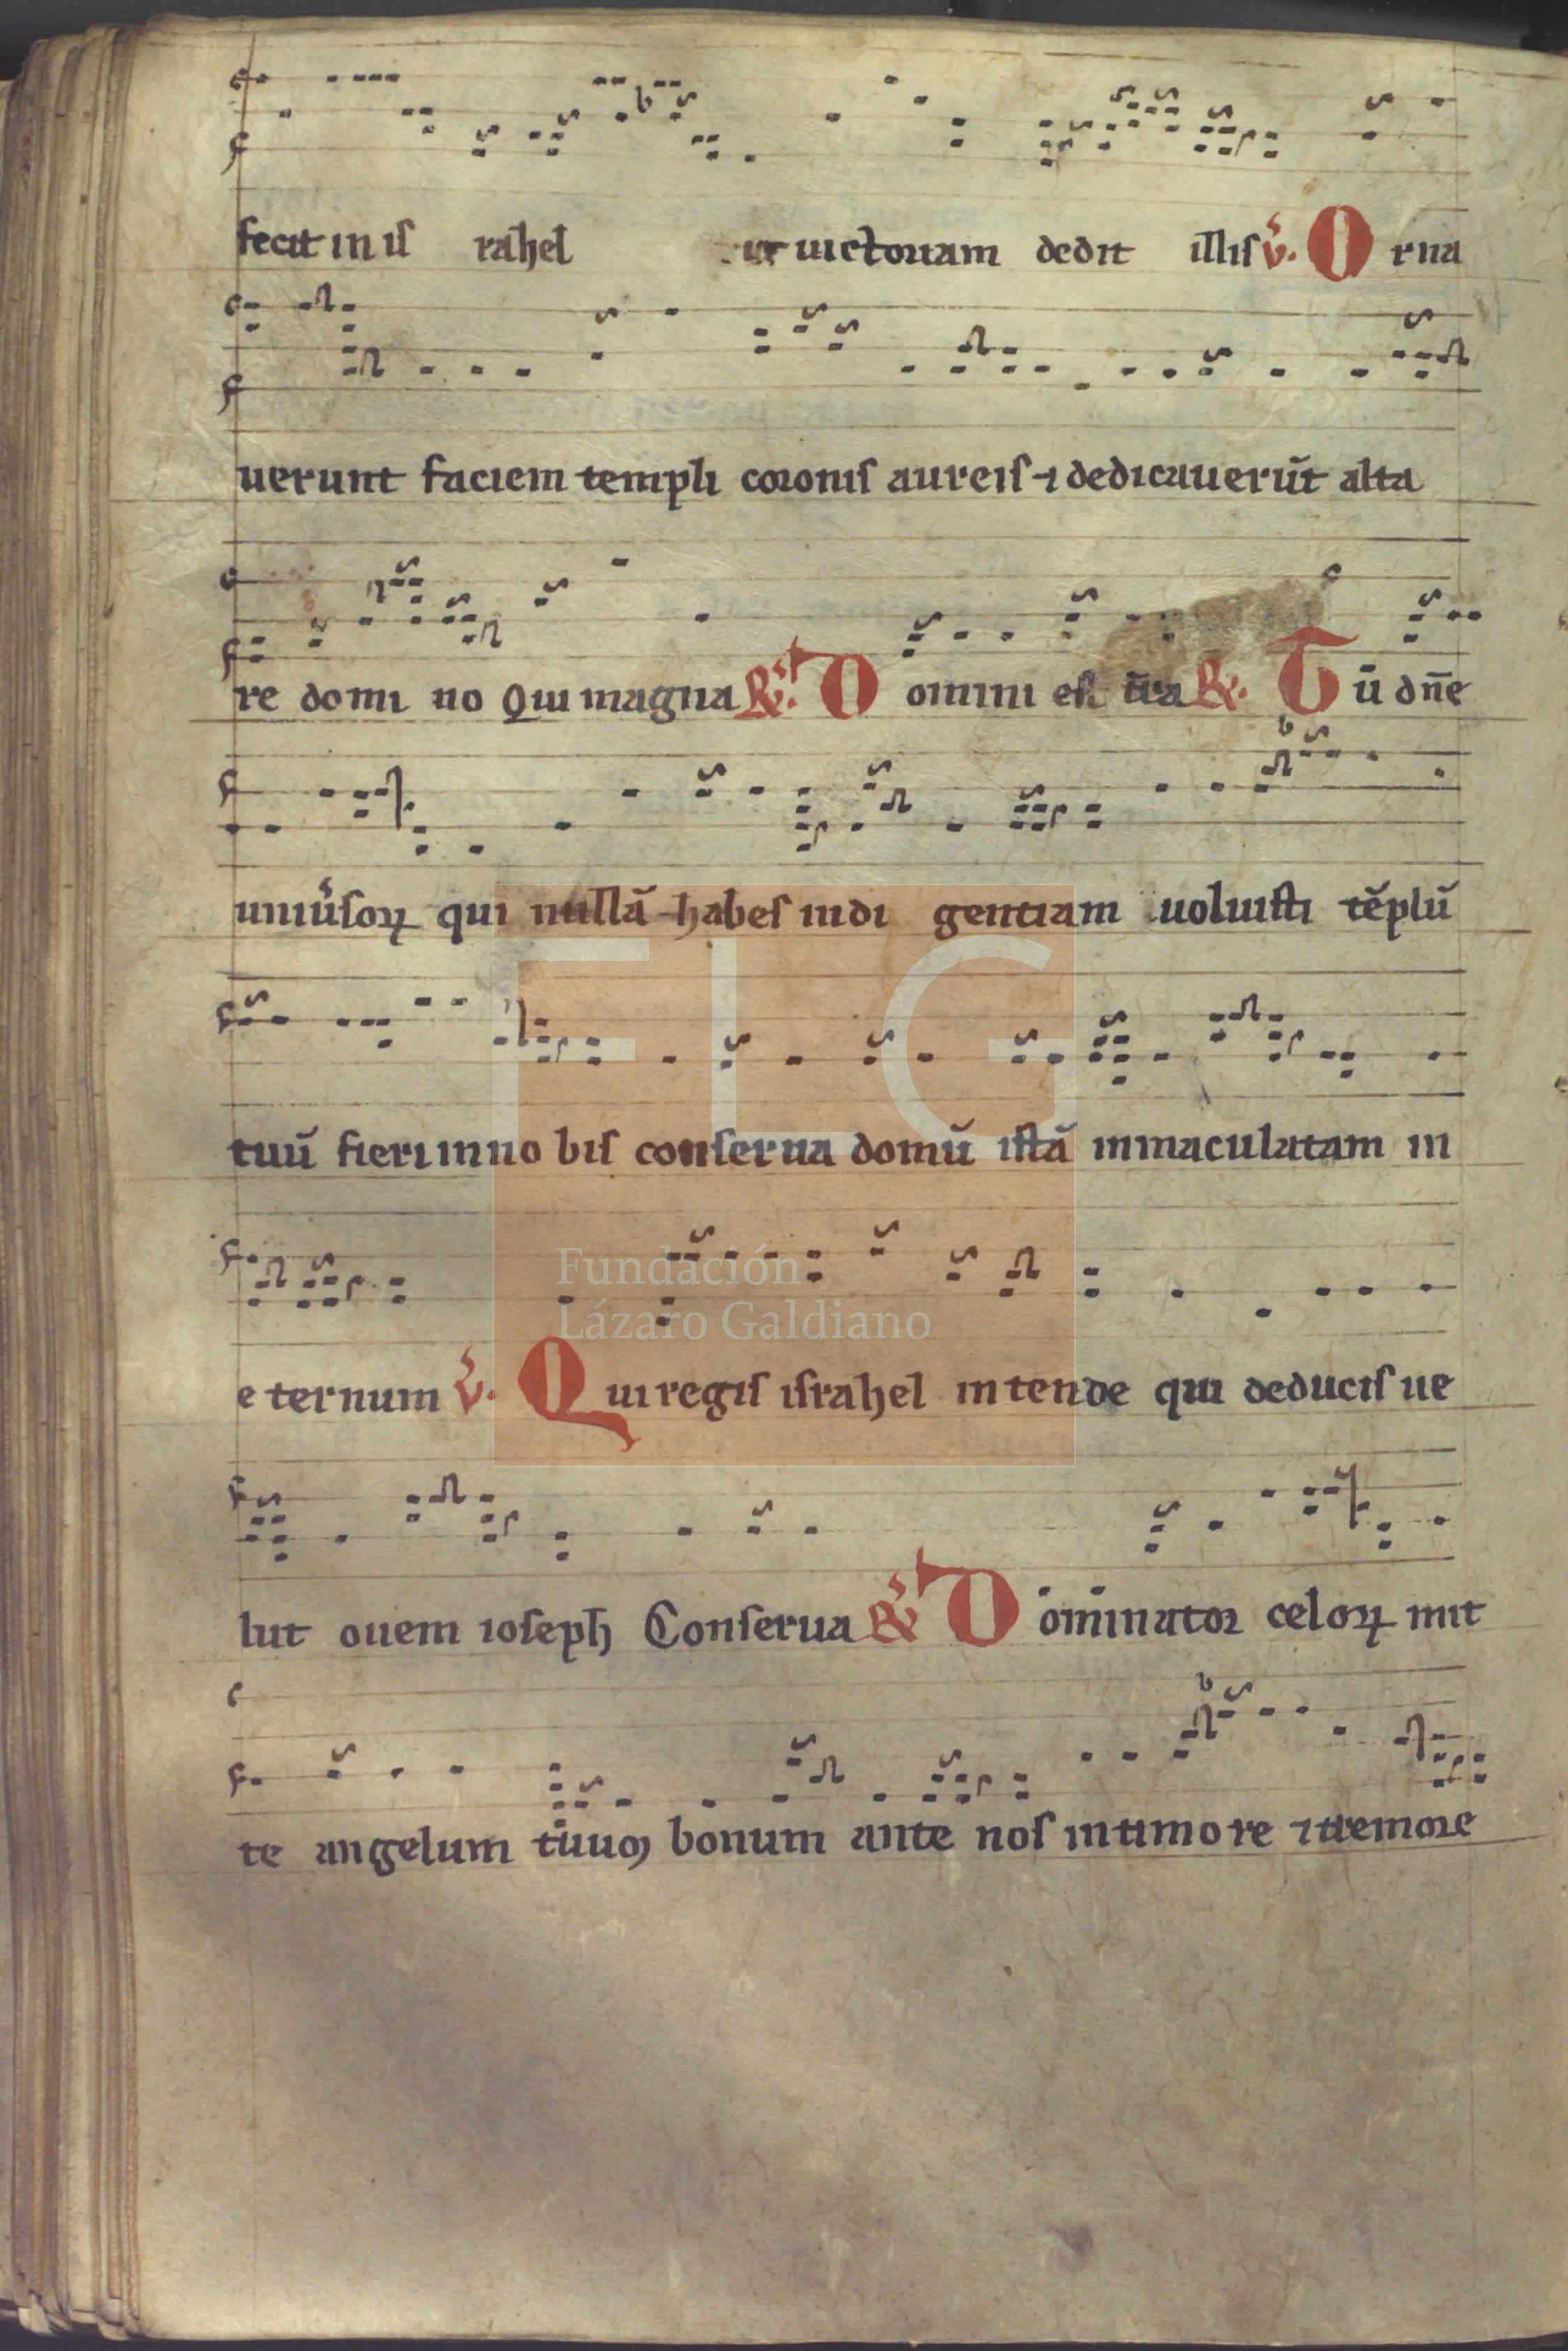 fecit in iſ rahel et uictoꝛiam dedit illiſ v̓. Orna
uerunt faciem templi coꝛoniſ aureiſ ⁊ dedicauerūt alta
re domi no Qui magna ℟. Domini eſt t̄ra ℟. Tū dn̄e
uniu̓ſoꝝ qui nullā habeſ indi gentiam uoluiſti tēplū
tuū fieri in no biſ conſerua domū iſtā inmaculatam in
Fundación
Lázaro Galdiano
e ternum v̓. Qui regiſ iſrahel in tende qui deduciſ ue
lut ouem ioſeph̄ Conſerua ℟ Dominatoꝛ celoꝝ mit
te angelum tuuꝫ bonum ante noſ in timo re ⁊ tremoꝛe
FLG